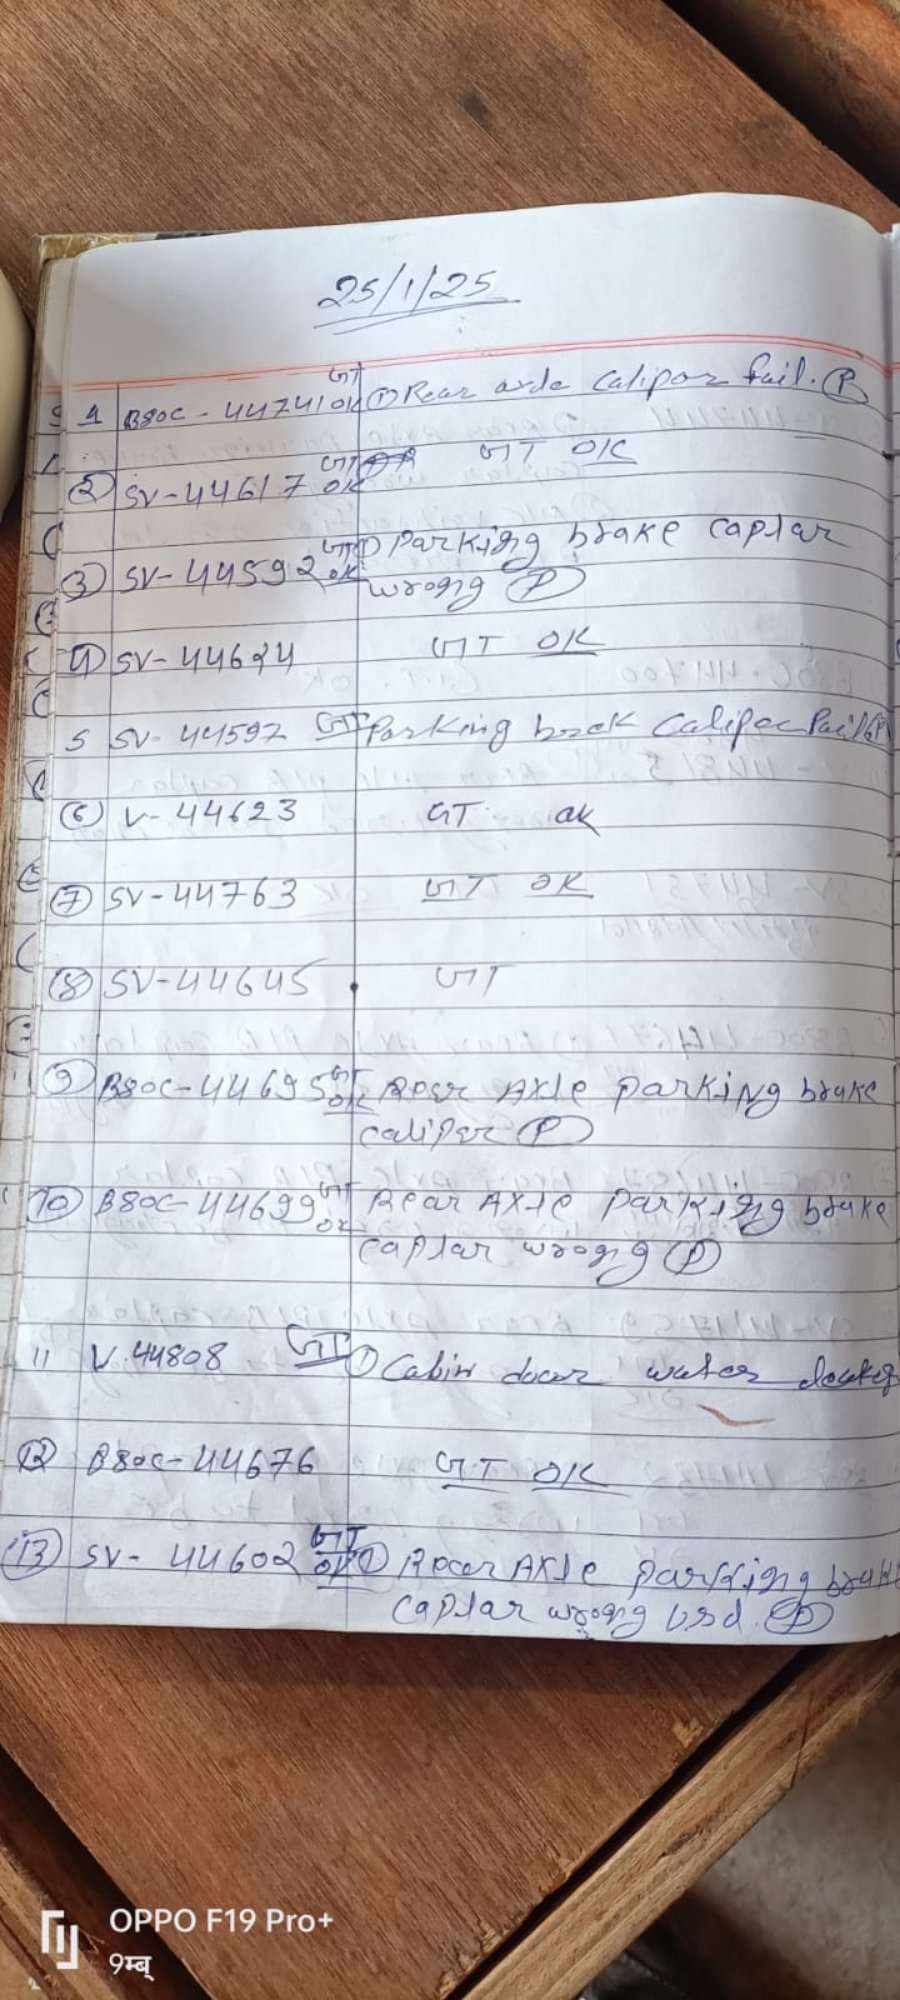 25/1/25
1 B80C - 44741 GT OK ① Rear axle Caliper fail. Ⓟ
② SV-44617 GT OK GT OK
③ SV-44592 GT OK ① Parking brake caplar
wrogng Ⓟ
④ SV-44624 GT OK
5 SV-44597 GT Parking brek Calipec Fail Ⓟ
⑥ V-44623 GT OK
⑦ SV-44763 GT OK
⑧ SV-44645 GT
⑨ B80C-44695 GT OK Rear AXle parking brake
caliper Ⓟ
⑩ B80C-44699 GT OK Rear AXle parking brake
caplar wrogng Ⓟ
11 V.44808 GT ① Cabin door water
⑫ B80C-44676 GT OK
⑬ SV-44602 GT OK ① Rear AXle parking brake
caplar wrogng Usd. Ⓟ
OPPO F19 Pro+
9म्ब्